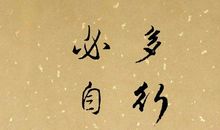 多行
必自